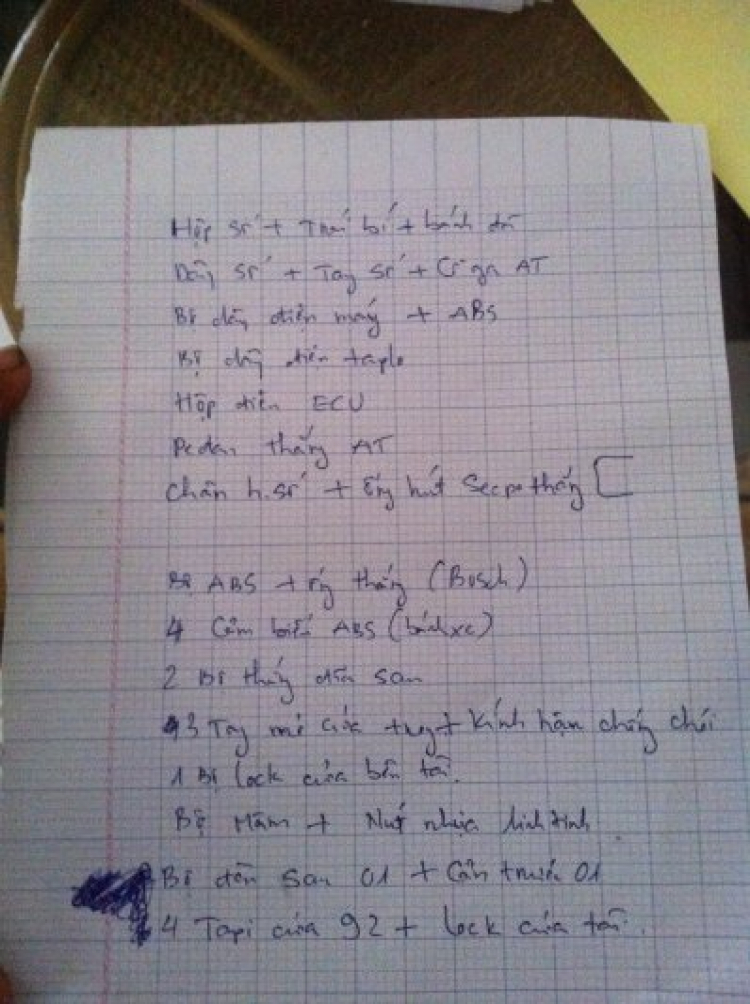 Hộp số + Thai bí + bánh đà
Dây số + Tay số + Cờ gạ AT
Bộ dây điện máy + ABS
Bộ dây điện taplo
Hộp điện ECU
Pedan thắng AT
Chân h.số + ống hút Secpo thắng
Bộ ABS + ống thắng (Bosch)
4 Cảm biến ABS (bánh xe)
2 Bộ thắng dĩa sau
3 Tay mở cửa + Kính hậu chống chói
1 Bộ lock cửa bên tài.
Bộ Mâm + Nút nhựa linh tinh
Bộ đèn sau 01 + Cản trước 01
4 Tapi cửa 92 + lock cửa tài.